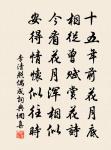 十五年前花月底
相從曾賦賞花詩
今看花月渾相似
安得情懷似往時
李清照偶成詞典網集